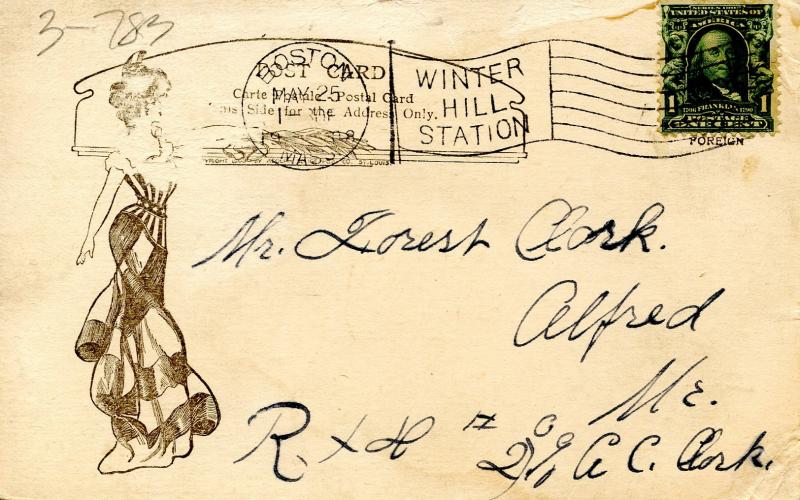 3-783
POST CARD
Carte Postale Postal Card
This Side for the Address Only.
BOSTON
MAY 25
1908
MASS
WINTER
HILL
STATION
SERIES 1902
UNITED STATES OF
AMERICA
1 1706 FRANKLIN 1790 1
POSTAGE
ONE CENT
FOREIGN
Mr. Forest Clark.
Alfred
Me.
R. + H
2 % A C. Clark.